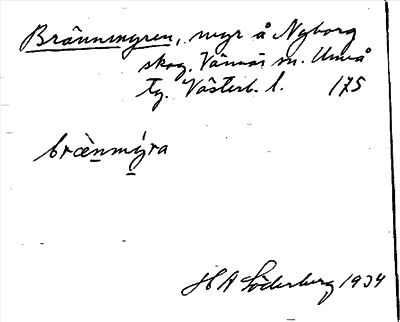 Brännmyren, myr å Nyborg
skog. Vännäs sn. Umeå
tg. Västerb. l. 175
bræ̀nmýra
H A Söderberg 1934